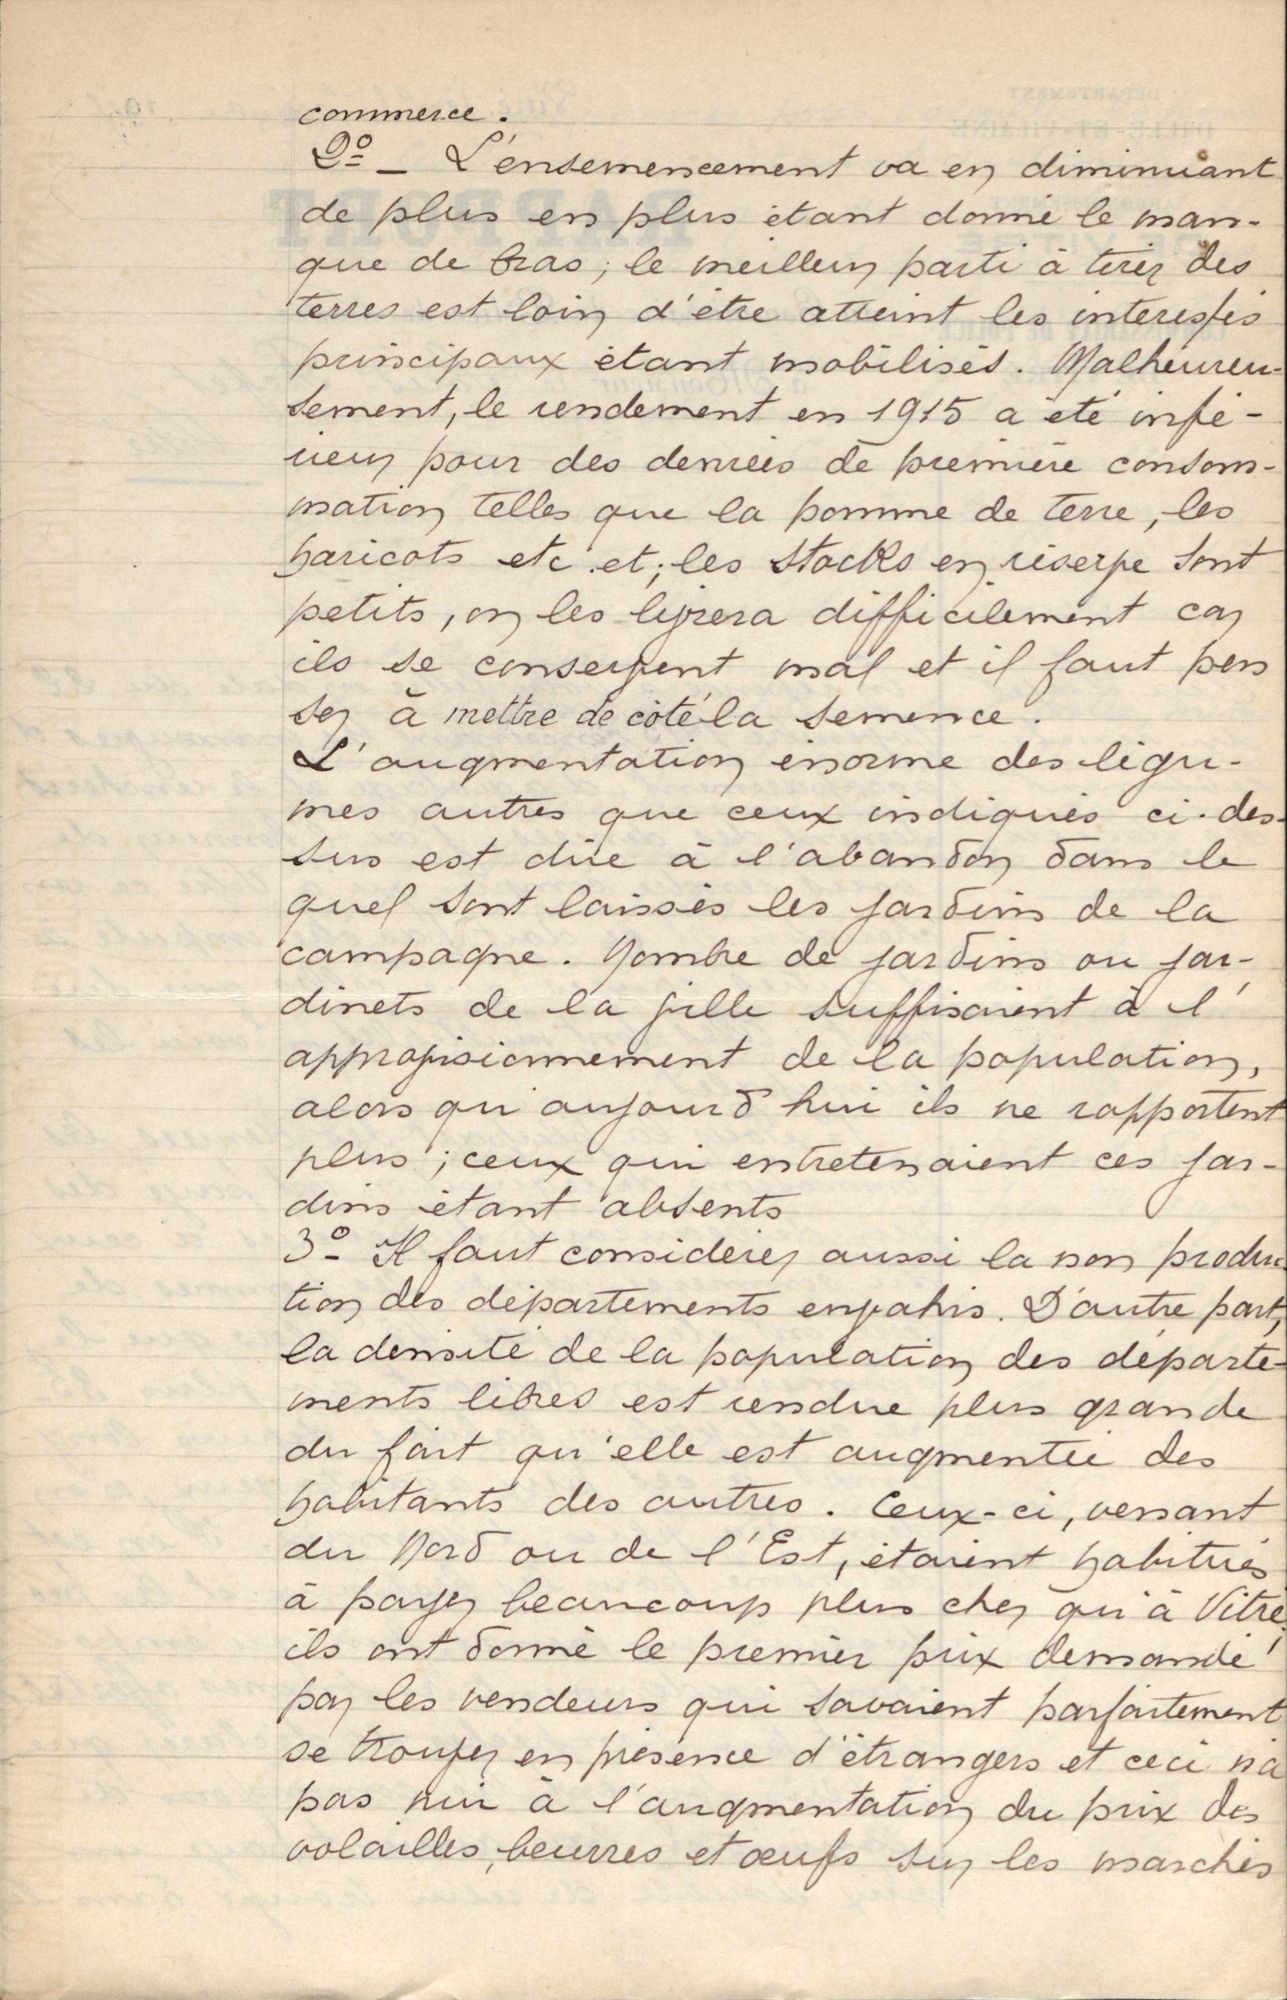 commerce.
2º - L'ensemencement va en diminuant
de plus en plus étant donné le man-
que de bras ; le meilleur parti à tirer des
terres est loin d'être atteint les interessés
principaux étant mobilisés. Malheureu-
sement, le rendement en 1915 a été infé-
rieur pour des denrées de première consom-
mation telles que la pomme de terre, les
haricots etc. et ; les stocks en réserve sont
petits, on les livrera difficilement car
ils se conservent mal et il faut pen
ser à mettre de côté la semence.
L'augmentation énorme des légu-
mes autres que ceux indiqués ci-des-
sus est dûe à l'abandon dans le
quel sont laissés les jardins de la
campagne. Nombre de jardins ou jar-
dinets de la ville suffisaient à l'
approvisionnement de la population,
alors qu'aujourd'hui ils ne rapportent
plus ; ceux qui entretenaient ces jar-
dins étant absents
3º- Il faut considérer aussi la non produc-
tion des départements envahis. D'autre part,
la densité de la population des départe-
ments libres est rendue plus grande
du fait qu'elle est augmentée des
habitants des autres. Ceux-ci, venant
du Nord ou de l'Est, étaient habitués
à payer beaucoup plus cher qu'à Vitré,
ils ont donné le premier prix demandé
par les vendeurs qui savaient parfaitement
se trouver en présence d'étrangers et ceci n'a
pas nui à l'augmentation du prix des
volailles, beurres et œufs sur les marchés